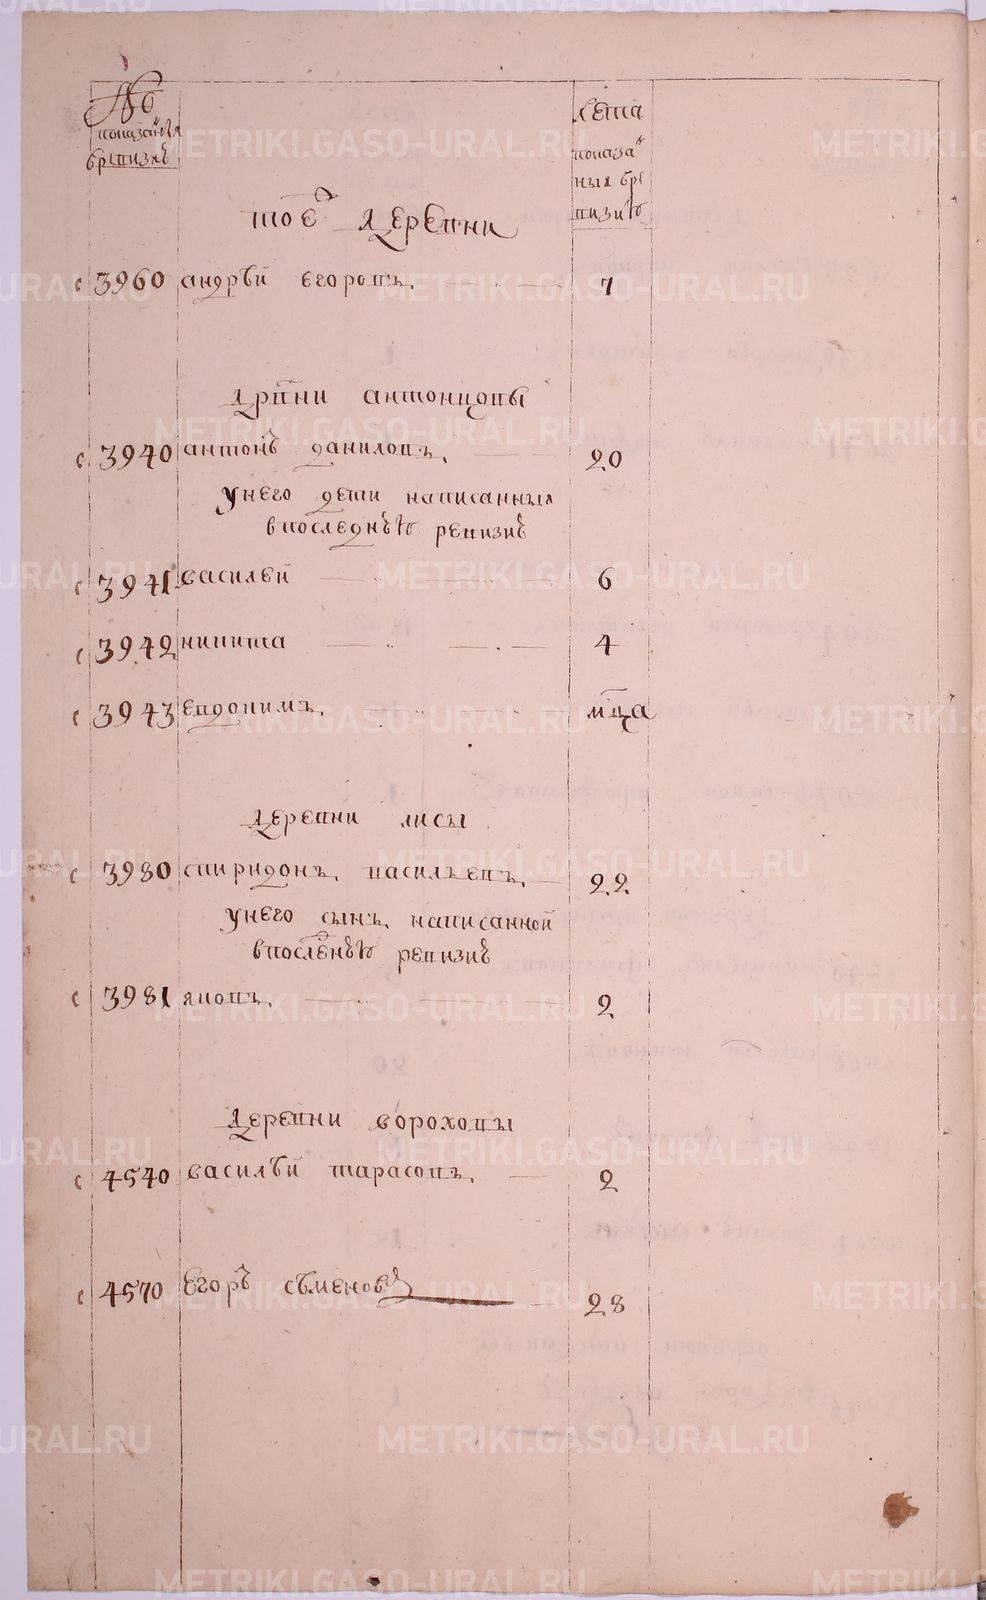 №
показанныя
вревизиѣ
Лета
показан
ныя вре
визиѣю
тоѣ деревни
с 3960 андрѣй егоровъ. 7
дрвни антонцовы
с 3940 антонъ даниловъ. 20
унего дети написанныя
впоследнѣю ревизиѣ
с 3941 василей 6
с 3942 никита 4
с 3943 евдокимъ. мца
деревни лисы
с 3980 спиридонъ. васильевъ. 22
унего сынъ. написанной
впослѣнѣю ревизиѣ
с 3981 яковъ. 2
деревни вороховы
с 4540 василѣй тарасовъ. 2
с 4570 Егоръ сѣменовъ 28
METRIKI.GASO-URAL.RU